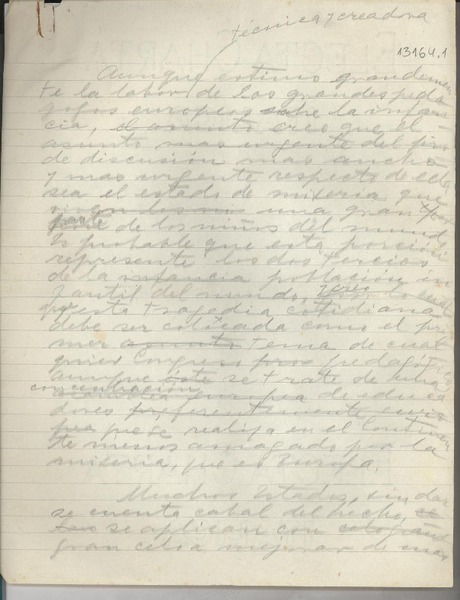 técnica y creadora
13164.1
Aunque estimo grandemen
te la labor de los grandes peda
gogos europeos sobre la infan
cia, el asunto creo que el
asunto mas urgente
de discusión mas ancha
y mas urgente respecto de ella
sea el estado de miseria que
una gran
parte de los niños del mund
Es probable que esta porción
represente los dos tercios
de la infancia población in
fantil del mundo,
esta tragedia cotidiana
debe ser colocada como el pri
mer asunto tema de cual
quier Congreso pedagó
aunque éste se trate de una
concentración
asamblea europea de educa
dores preferentemente
que se realiza en el Continen
te menos amagado por la
miseria, que es Europa.
Muchos Estados, sin dar
se cuenta cabal del hecho,
se aplican con
gran celo a mejorar